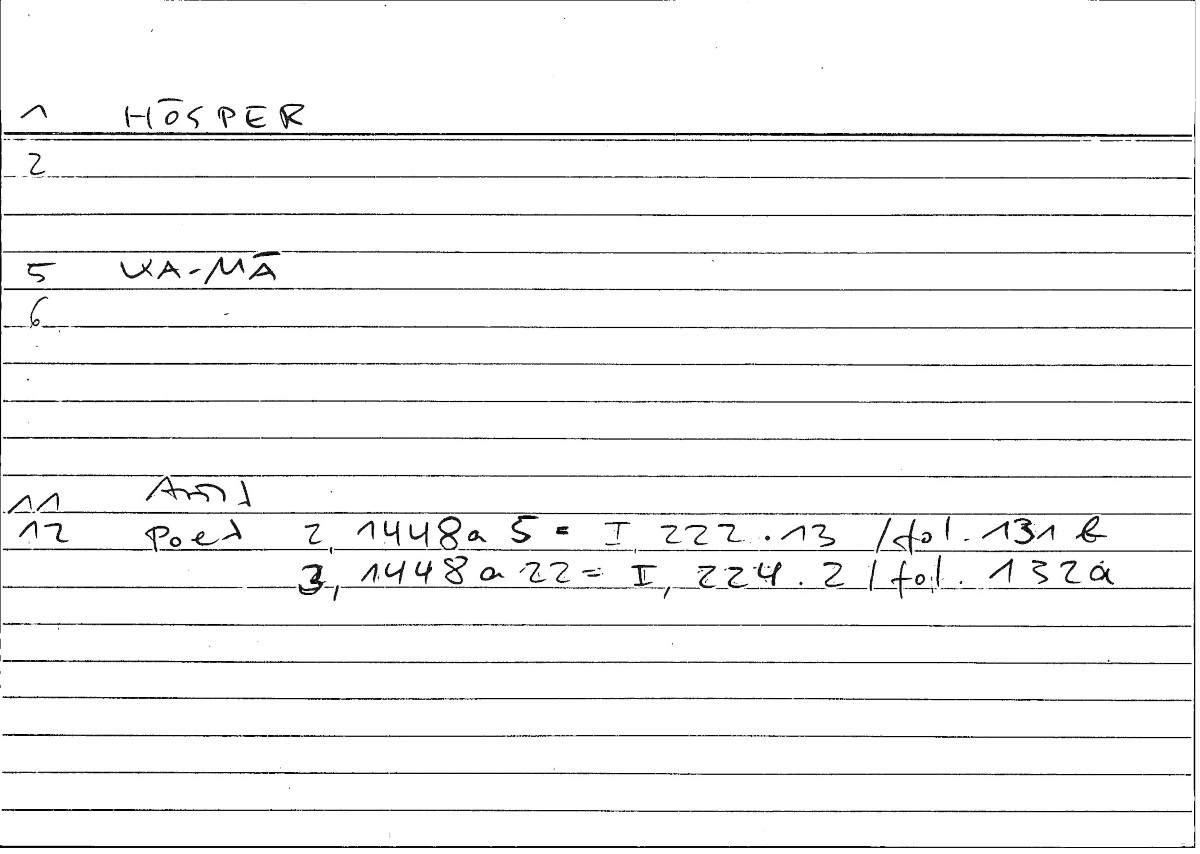 1 HŌSPER
2
5 KA-MĀ
6
11
12 Poet 2, 1448a 5 = I, 222.13 /fol. 131 b
3, 1448a 22 = I, 224.2 / fol. 132a